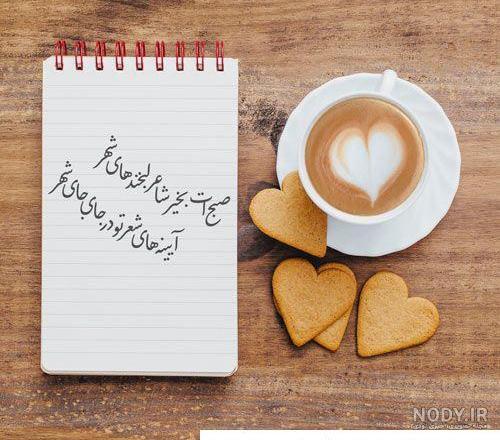 صبح‌ات بخیر شاعر لبخندهای شهر
آیینه‌های شعر تو در جای جای شهر
NODY.IR